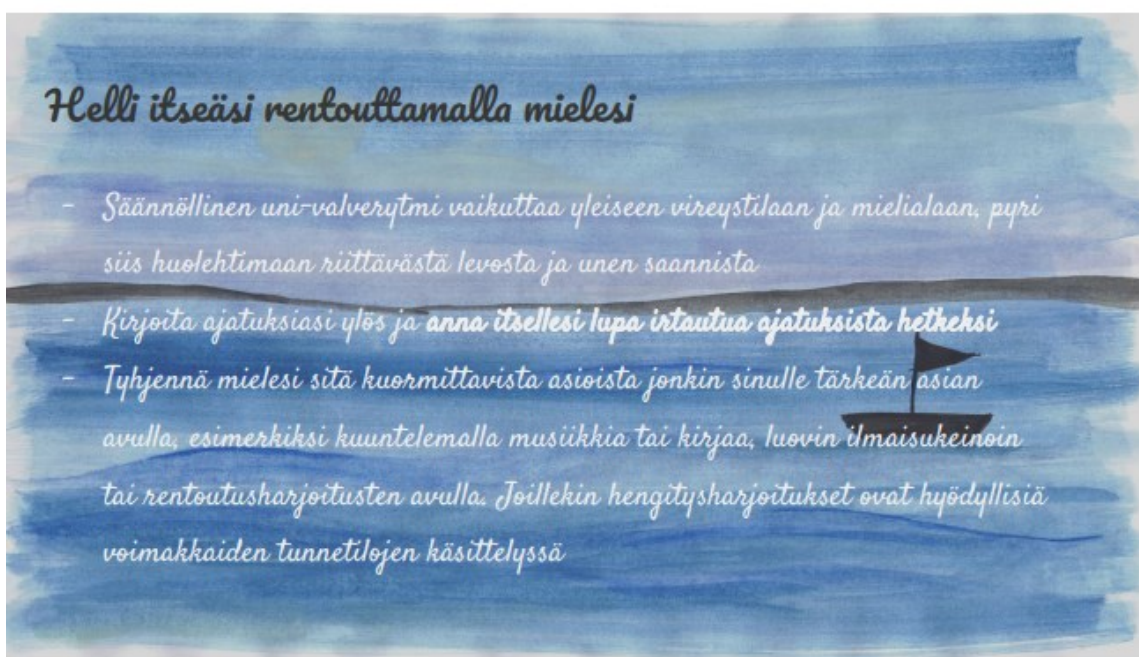 Helli itseäsi rentouttamalla mielesi
- Säännöllinen uni-valverytmi vaikuttaa yleiseen vireystilaan ja mielialaan, pyri
siis huolehtimaan riittävästä levosta ja unen saannista
- Kirjoita ajatuksiasi ylös ja anna itsellesi lupa irtautua ajatuksista hetkeksi
- Tyhjennä mielesi sitä kuormittavista asioista jonkin sinulle tärkeän asian
avulla, esimerkiksi kuuntelemalla musiikkia tai kirjaa, luovin ilmaisukeinoin
tai rentoutusharjoitusten avulla. Joillekin hengitysharjoitukset ovat hyödyllisiä
voimakkaiden tunnetilojen käsittelyssä